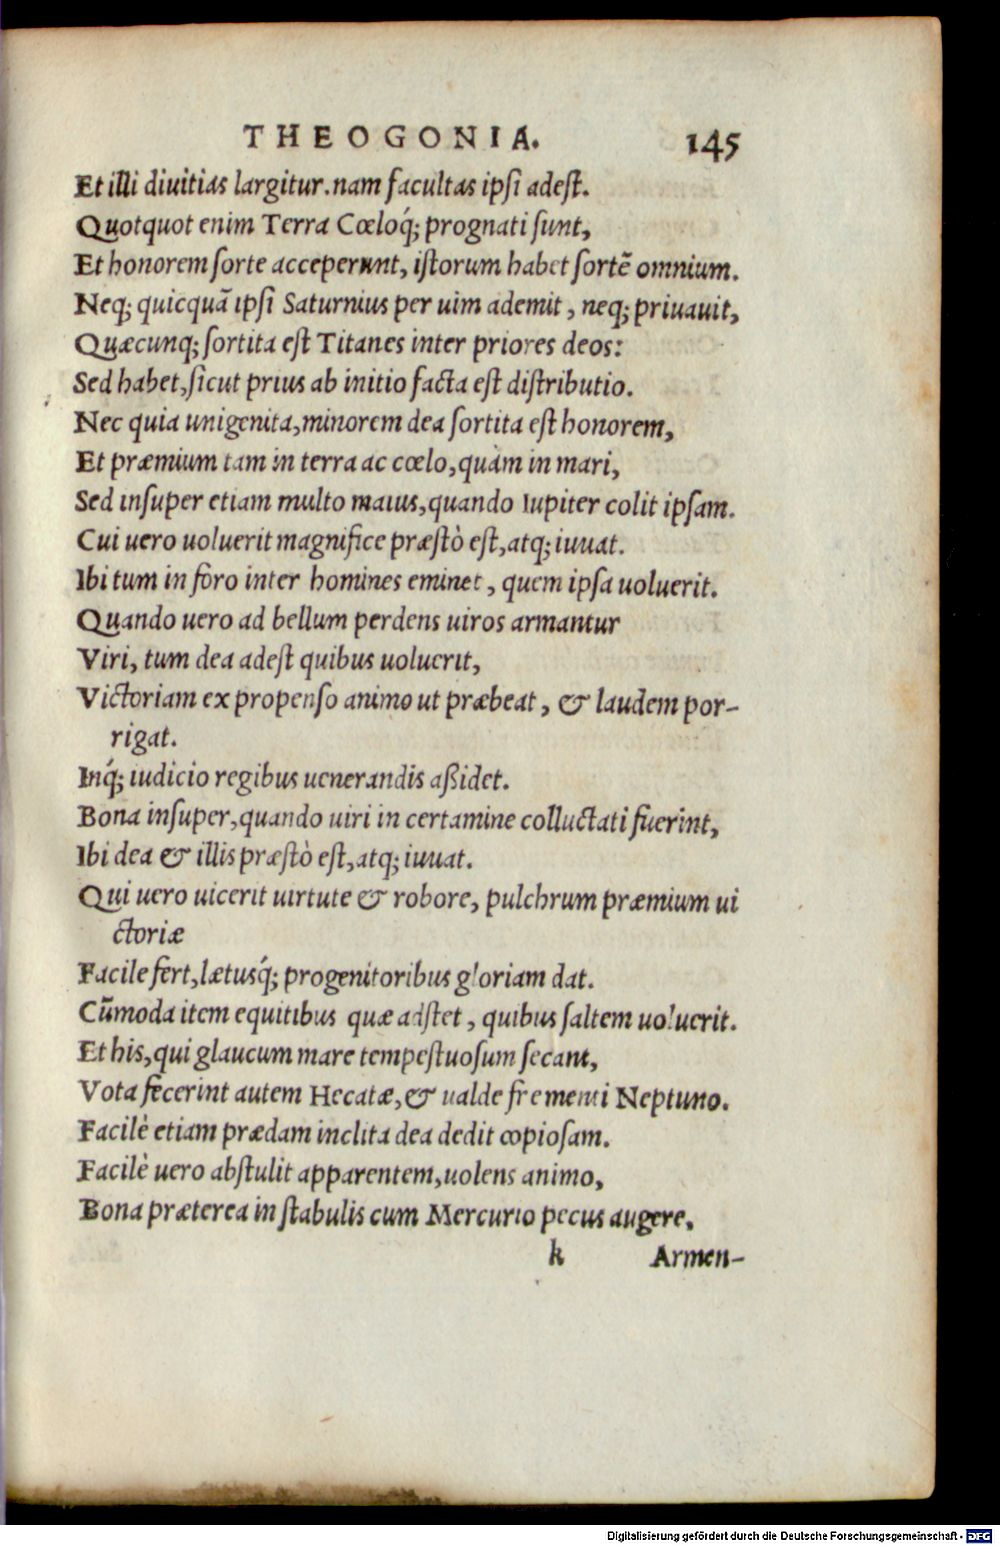 THEOGONIA. 145
Et illi diuitias largitur. nam facultas ipsi adest.
Quotquot enim Terra Cœloq́; prognati sunt,
Et honorem sorte acceperunt, istorum habet sortẽ omnium.
Neq; quicquã ipsi Saturnius per uim ademit, neq; priuauit,
Quæcunq; sortita est Titanes inter priores deos:
Sed habet, sicut prius ab initio facta est distributio.
Nec quia unigenita, minorem dea sortita est honorem,
Et præmium tam in terra ac cœlo, quàm in mari,
Sed insuper etiam multo maius, quando Iupiter colit ipsam.
Cui uero uoluerit magnifice præstò est, atq; iuuat.
Ibi tum in foro inter homines eminet, quem ipsa uoluerit.
Quando uero ad bellum perdens uiros armantur
Viri, tum dea adest quibus uoluerit,
Victoriam ex propenso animo ut præbeat, & laudem por-
rigat.
Inq́; iudicio regibus uenerandis aßidet.
Bona insuper, quando uiri in certamine colluctati fuerint,
Ibi dea & illis præstò est, atq; iuuat.
Qui uero uicerit uirtute & robore, pulchrum præmium ui
ctoriæ
Facile fert, lætusq́; progenitoribus gloriam dat.
Cũmoda item equitibus quæ adstet, quibus saltem uoluerit.
Et his, qui glaucum mare tempestuosum secant,
Vota fecerint autem Hecatæ, & ualde frementi Neptuno.
Facilè etiam prædam inclita dea dedit copiosam.
Facilè uero abstulit apparentem, uolens animo,
Bona præterea in stabulis cum Mercurio pecus augere.
k Armen-
Digitalisierung gefördert durch die Deutsche Forschungsgemeinschaft - DFG